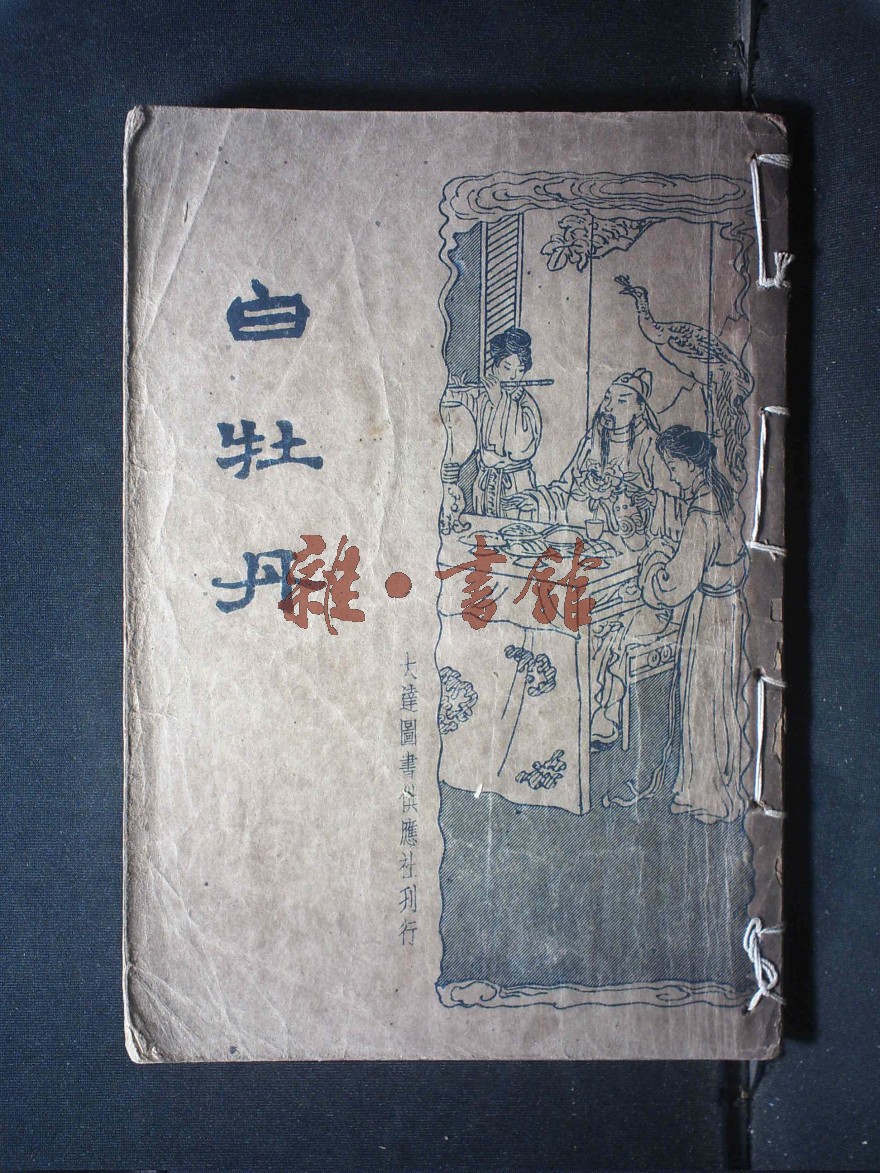 白牡丹
大達圖書供應社刊行
雜·書館